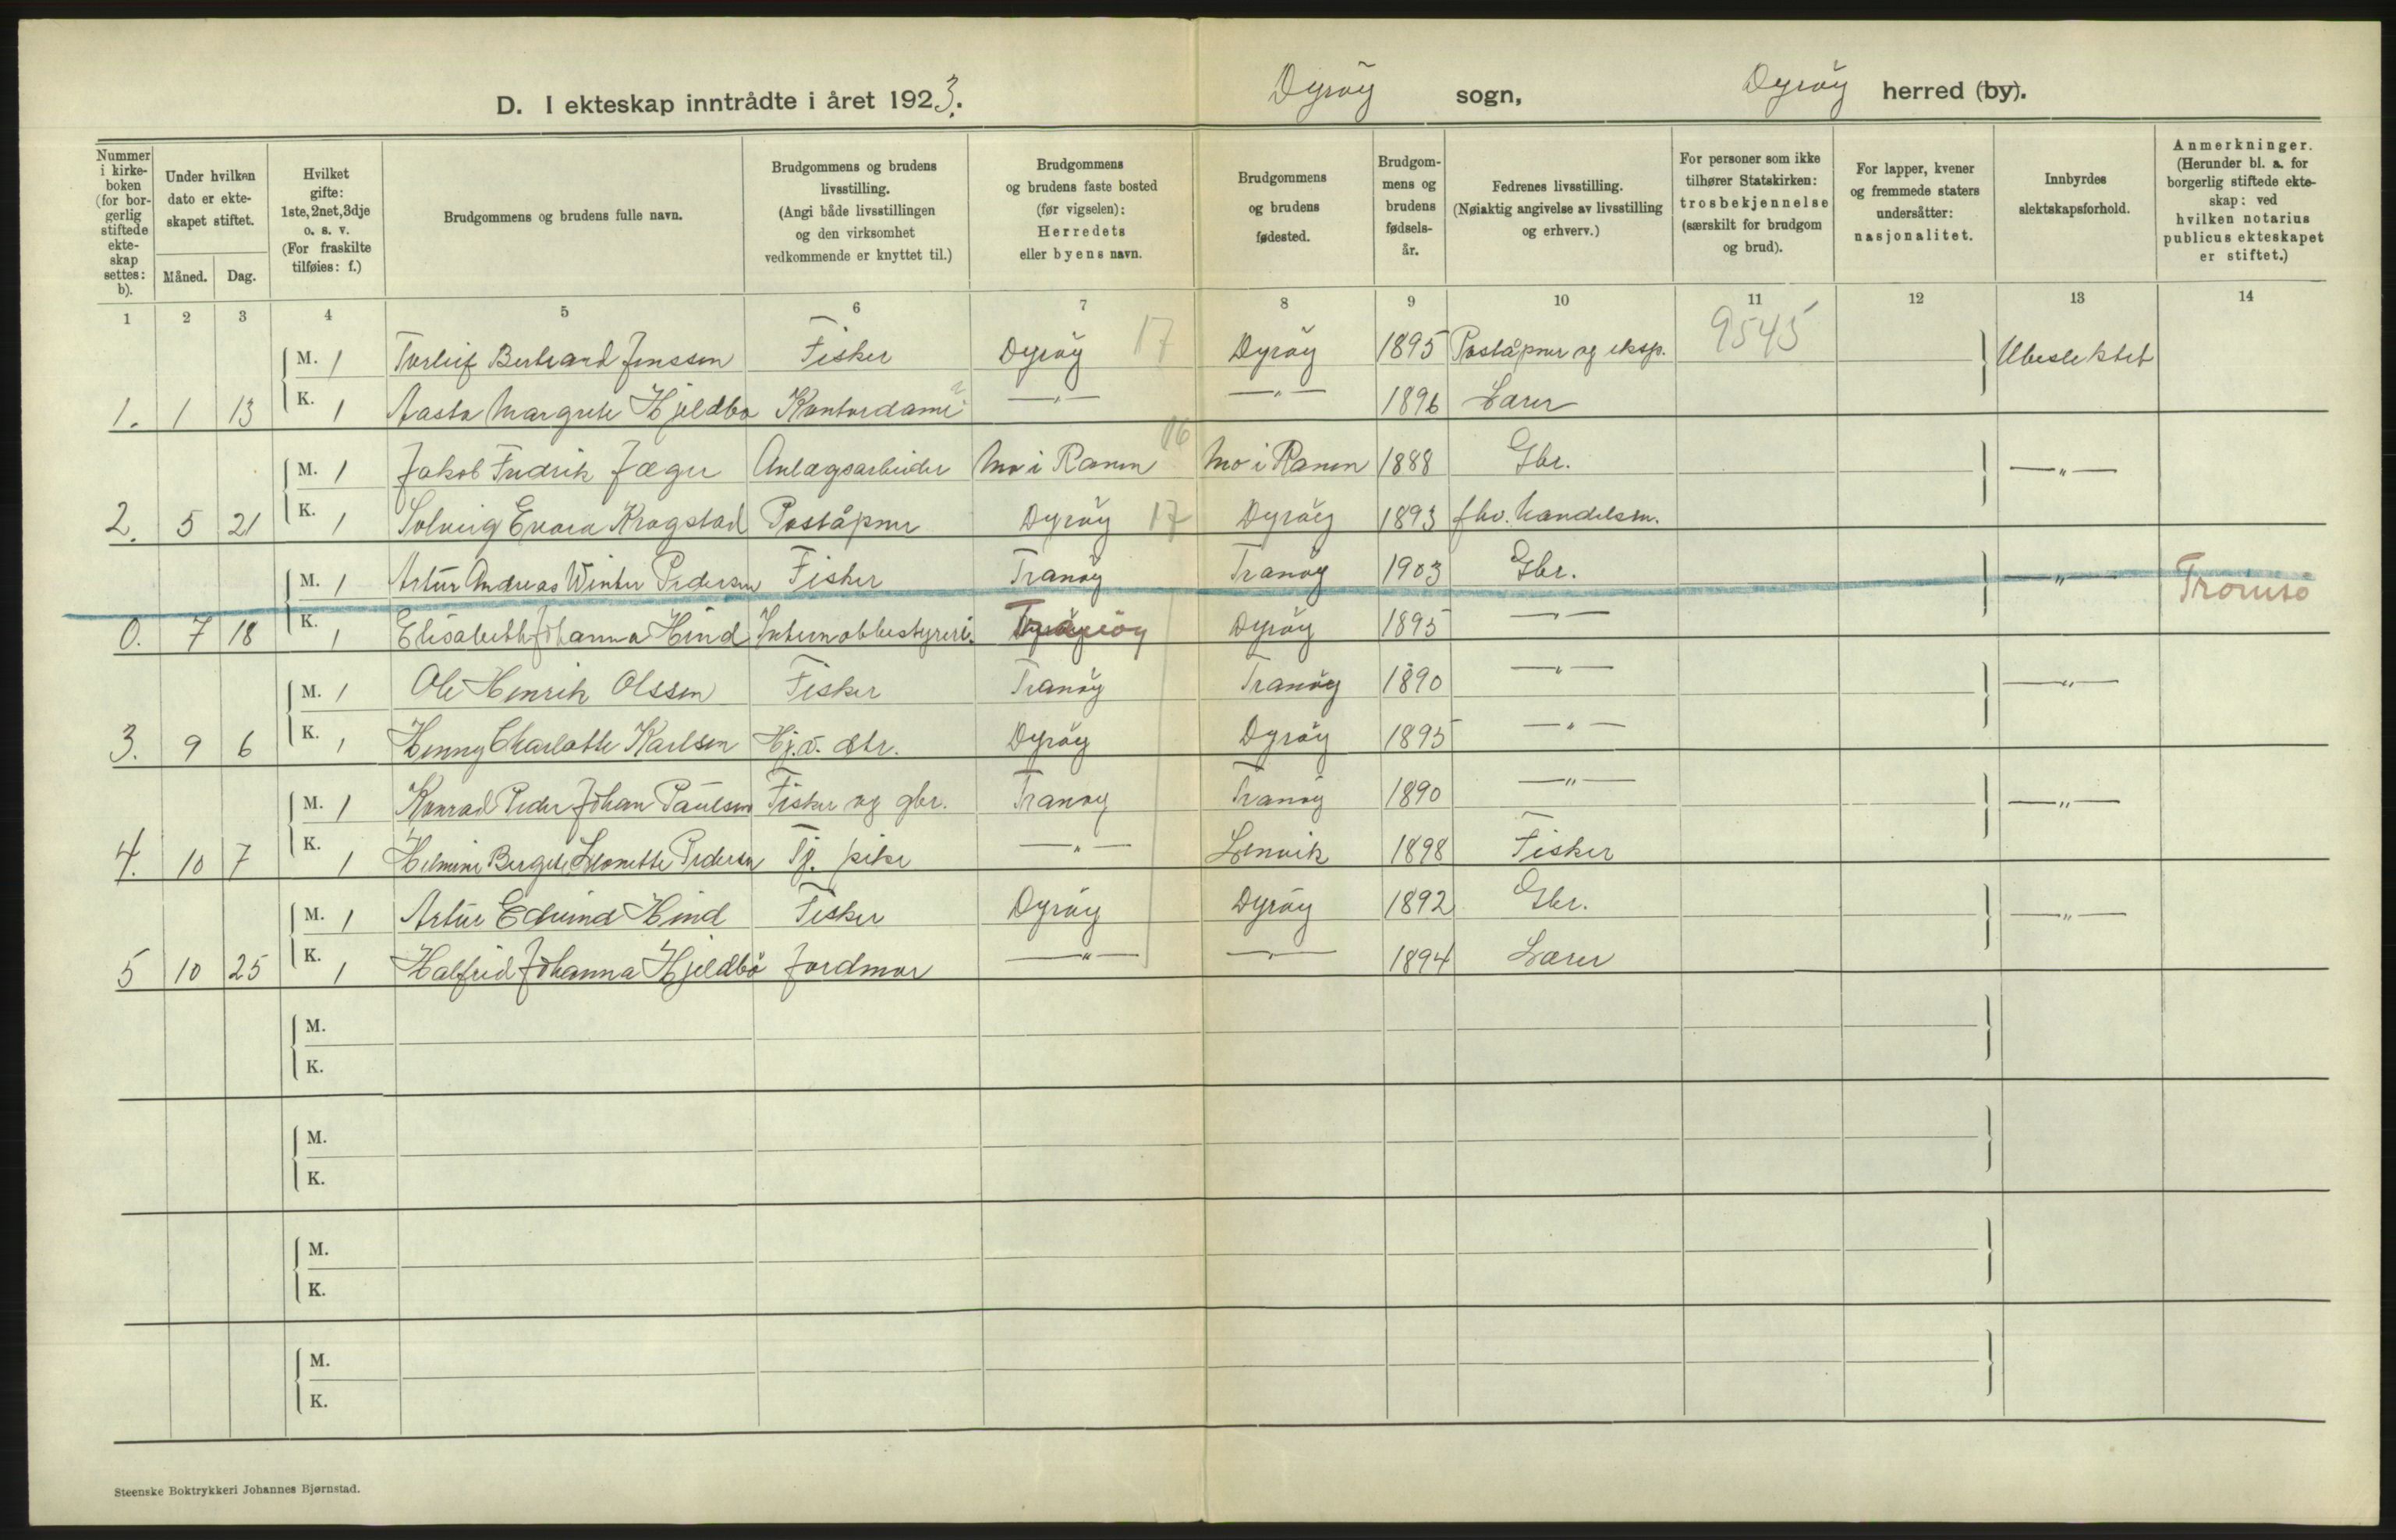 D. I ekteskap inntrådte i året 1923. Dyrøy sogn, Dyrøy herred (by).
Nummer i kirkeboken (for borgerlig stiftede ekteskap settes: b).
Under hvilken dato er ekteskapet stiftet.
Måned. Dag.
Hvilket gifte: 1ste, 2net, 3dje o. s. v. (For fraskilte tilføies: f.)
Brudgommens og brudens fulle navn.
Brudgommens og brudens livsstilling. (Angi både livsstillingen og den virksomhet vedkommende er knyttet til.)
Brudgommens og brudens faste bosted (før vigselen): Herredets eller byens navn.
Brudgommens og brudens fødested.
Brudgommens og brudens fødselsår.
Fedrenes livsstilling. (Nøiaktig angivelse av livsstilling og erhverv.)
For personer som ikke tilhører Statskirken: trosbekjennelse (særskilt for brudgom og brud).
For lapper, kvener og fremmede staters undersåtter: nasjonalitet.
Innbyrdes slektskapsforhold.
Anmerkninger. (Herunder bl. a. for borgerlig stiftede ekteskap: ved hvilken notarius publicus ekteskapet er stiftet.)
1 2 3 4 5 6 7 8 9 10 11 12 13 14
M. 1 Torleif Bertrand Jenssen Fisker Dyrøy 17 Dyrøy 1895 Poståpner og eksp. 9545 Ubeslektet
1. 1 13 K. 1 Aasta Margrete Hjeldbø Kontordame —„— —„— 1896 Lærer
M. 1 Jakob Fredrik Jæger Anlægsarbeider Mo i Ranen 16 Mo i Ranen 1888 Gbr. —„—
2. 5 21 K. 1 Solveig Evara Krogstad Poståpner Dyrøy 17 Dyrøy 1893 fhv. handelsm.
M. 1 Artur Andreas Winter Pedersen Fisker Tranøy Tranøy 1903 Gbr. —„— Tromsø
0. 7 18 K. 1 Elisabeth Johanna Hind Internatbestyrer. Dyrøy 1895 —„—
M. 1 Ole Henrik Olssen Fisker Tranøy Tranøy 1890 —„— —„—
3. 9 6 K. 1 Henny Charlotte Karlsen Hj.v. dtr. Dyrøy Dyrøy 1895 —„—
M. 1 Konrad Peder Johan Paulsen Fisker og gbr. Tranøy Tranøy 1890 —„— —„—
4. 10 7 K. 1 Helmine Bergete Leonette Pedersen Tj. pike —„— Lenvik 1898 Fisker
M. 1 Artur Edvind Hind Fisker Dyrøy Dyrøy 1892 Gbr. —„—
5 10 25 K. 1 Halfrid Johanna Hjeldbø Jordmor —„— —„— 1894 Lærer
M.
K.
M.
K.
M.
K.
M.
K.
Steenske Boktrykkeri Johannes Bjørnstad.